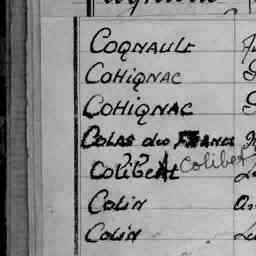 COGNAULT
COHIGNAC
COHIGNAC
COLAS des FRANCS
COLIBERT Colibet
COLIN
COLIN